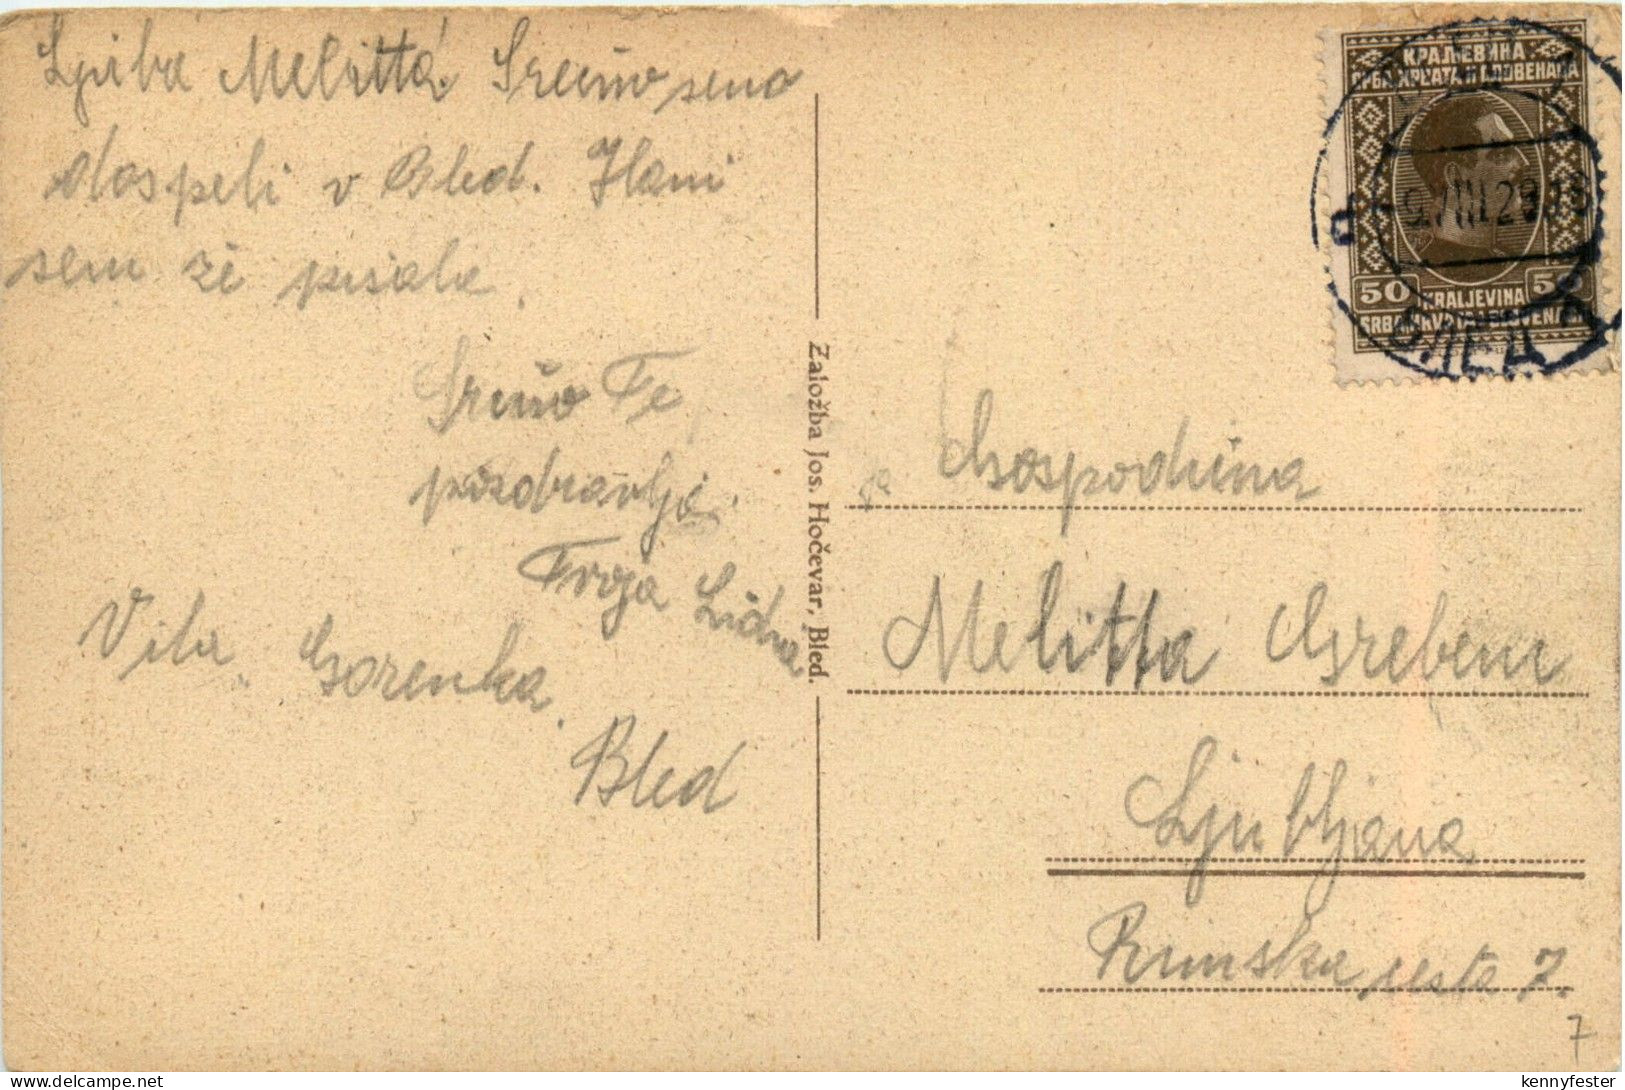 Ljuba Melitta. Srečno smo
dospeli v Bled. Hani
sem že pisala.
Srčno Te
pozdravlja.
Tvoja Lidva
Vila Gorenka.
Bled
Založba Jos. Hočevar, Bled.
КРАЉЕВИНА
СРБА ХРВАТА И СЛОВЕНАЦА
50 50
KRALJEVINA
SRBA HRVATA I SLOVENACA
9.VIII.29.18
БЛЕД
Gospodična
Melitta Grebenc
Ljubljana
Rimska cesta 7.
7
delcampe.net
kennyfester